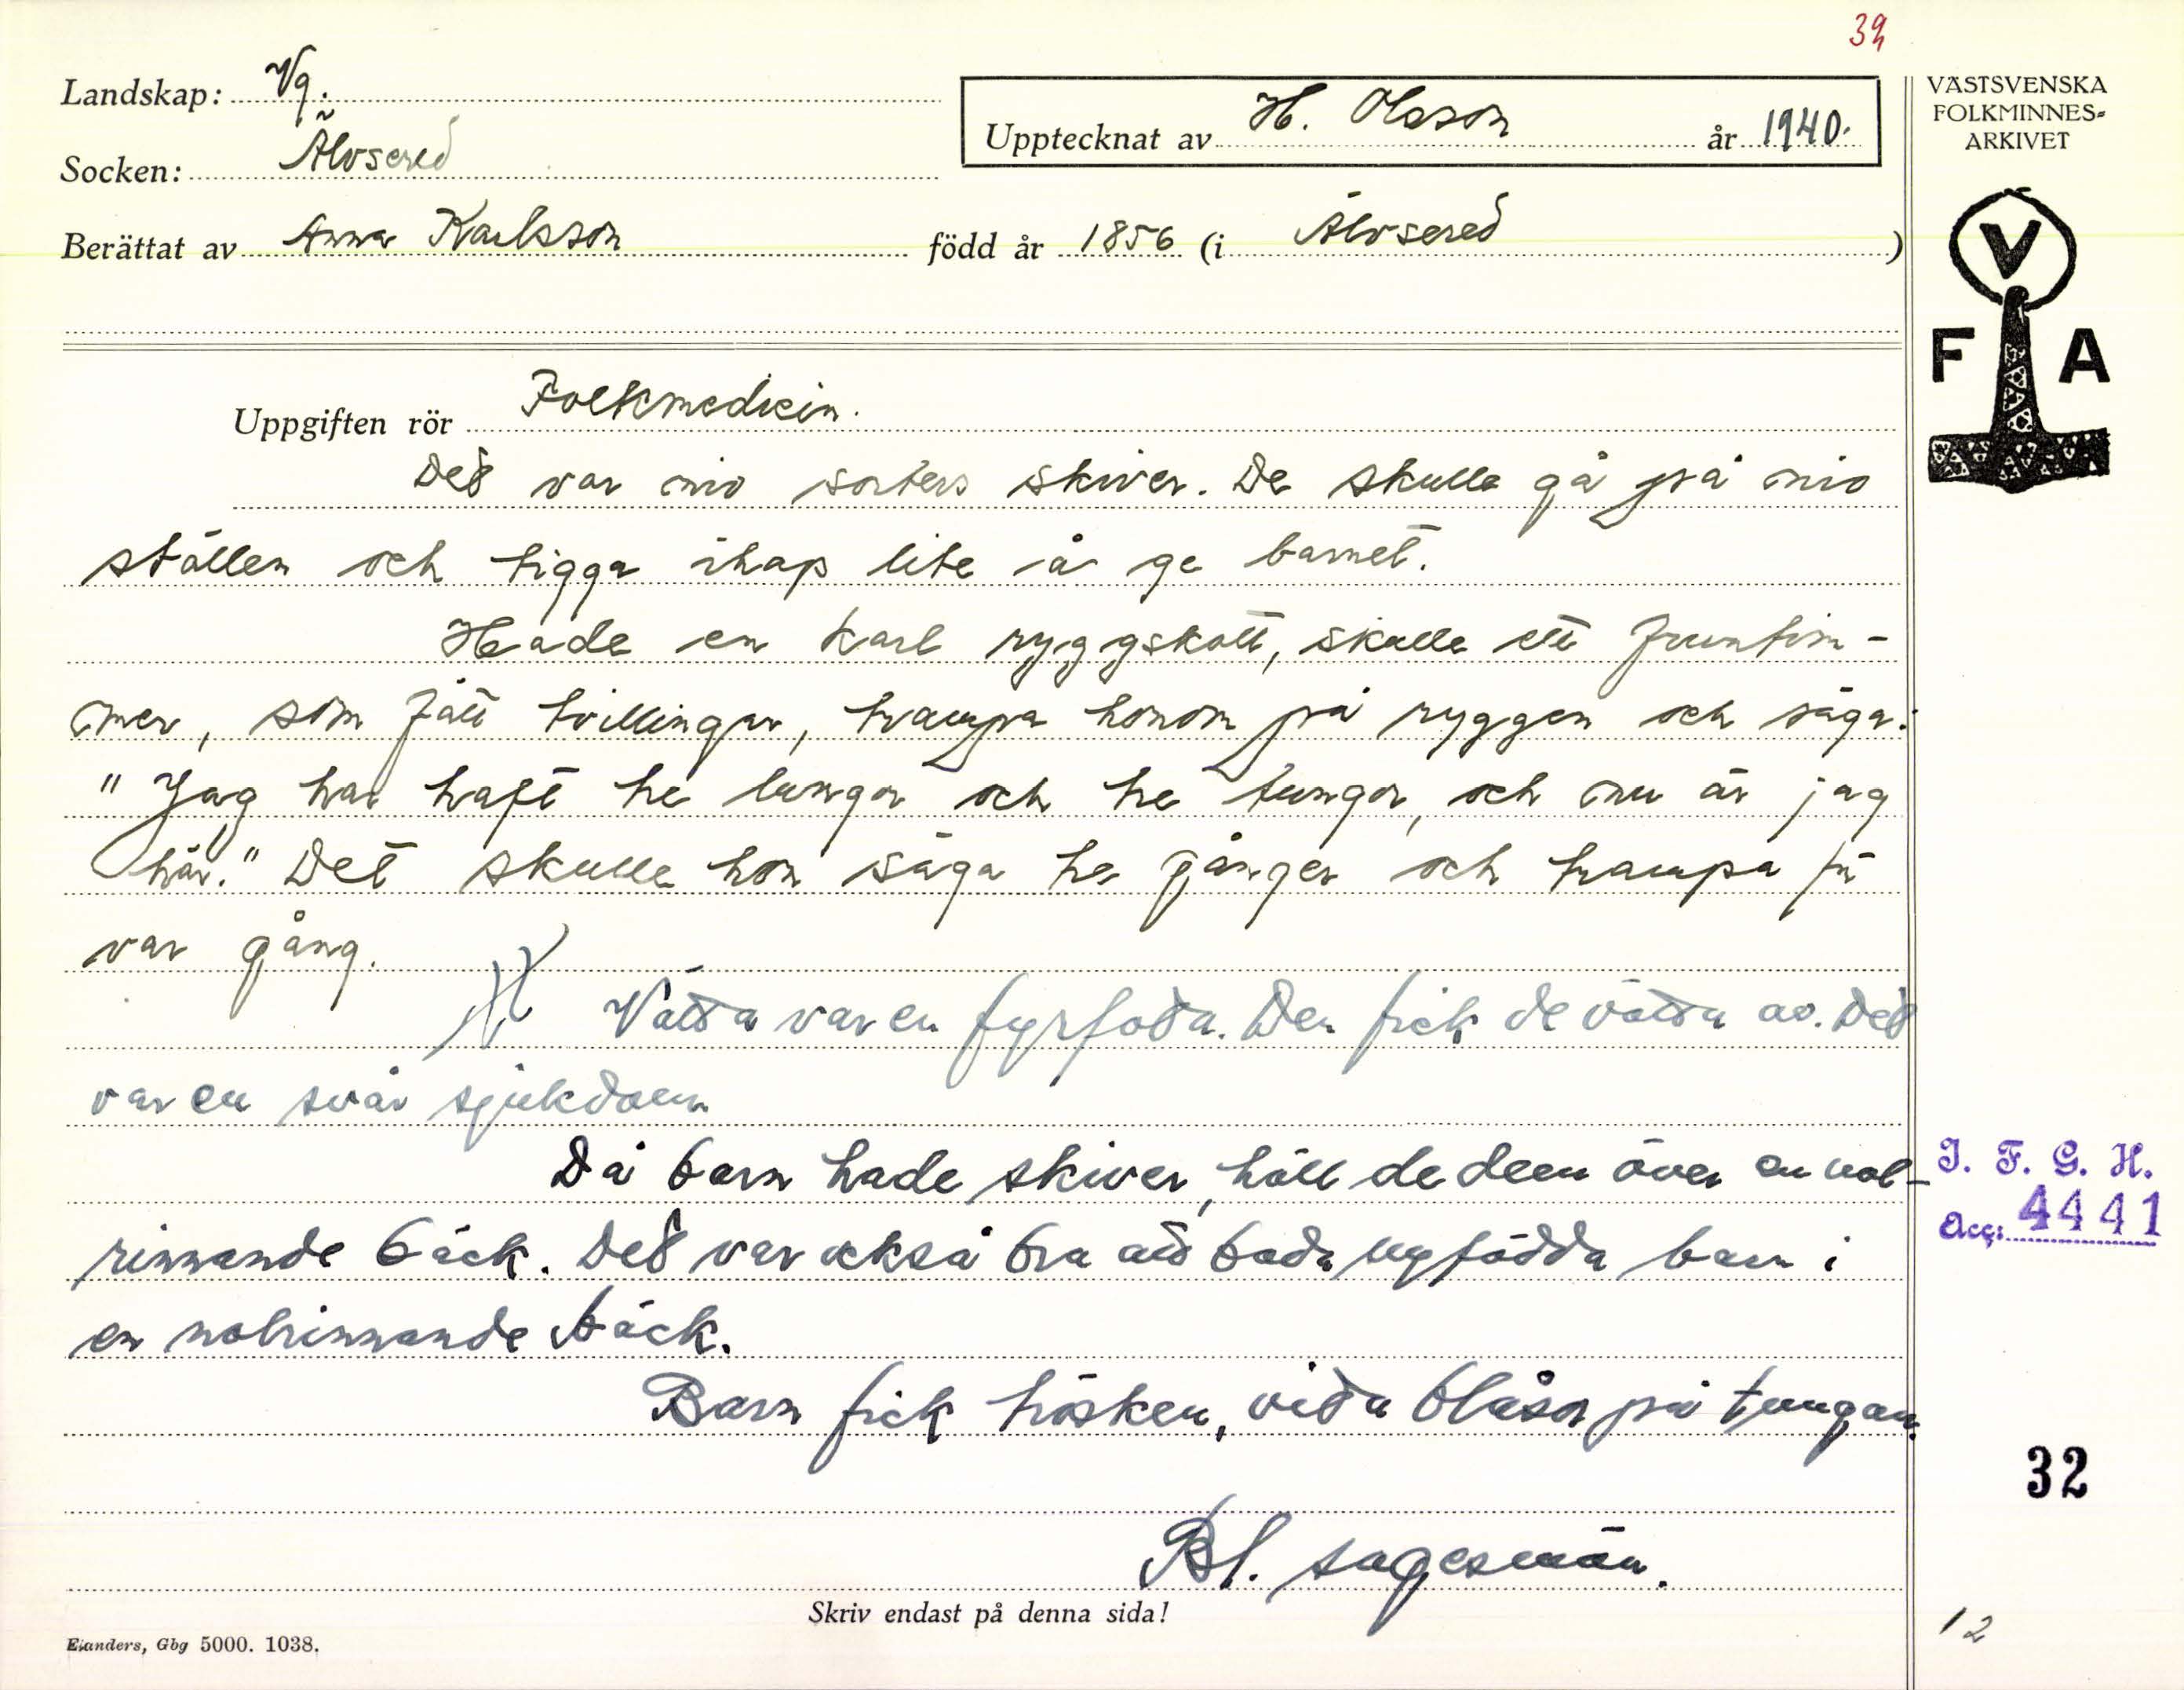 39
Landskap: Vg.
Socken: Älvsered
Upptecknat av H. Olsson år 1940.
Berättat av Anna Karlsson född år 1856 (i Älvsered)
VÄSTSVENSKA
FOLKMINNES=
ARKIVET
V
F A
Uppgiften rör Folkmedicin.
Det var nio sorters skiver. De skulle gå på nio
ställen och tigga ihap lite å ge barnet.
Hade en karl ryggskott, skulle ett fruntim-
mer, som fått tvillingar, trampa honom på ryggen och säga:
"Jag har haft tre lungor och tre tungor, och nu är jag
här." Det skulle hon säga tre gånger och trampa för
var gång.
Vätta var en fyrfota. Den fick de vätta av. Det
var en svår sjukdom
Då barn hade skiver, höll de dem över en nol-
rinnande bäck. Det var också bra att bada nyfödda barn i
en nolrinnande bäck.
Barn fick trösken, vita blåsor på tungan.
Bl. sagesmän.
I. F. G. H.
Acc: 4441
32
Skriv endast på denna sida!
Elanders, Gbg 5000. 1038.
12